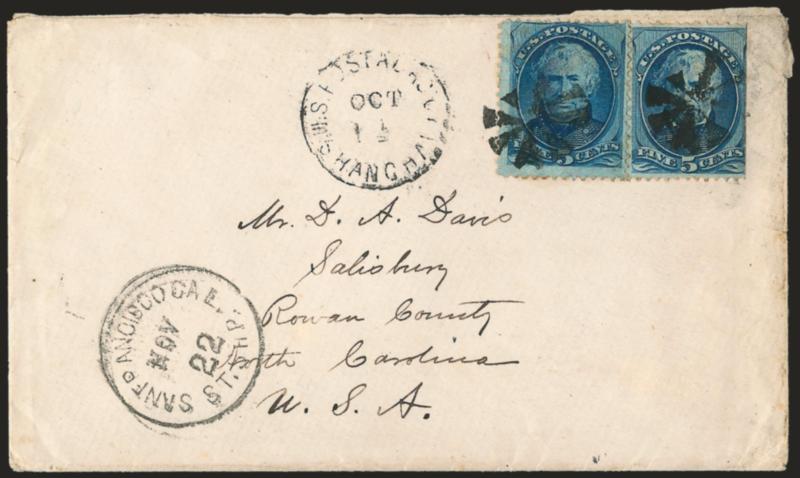 U.S. POSTAGE
FIVE 5 CENTS
U.S. POSTAGE
FIVE 5 CENTS
U.S. POSTAL AG'CY
OCT
SHANGHAI
Mr. D. A. Davis
Salisbury
Rowan County
North Carolina
U. S. A.
SAN FRANCISCO CAL.
NOV
22